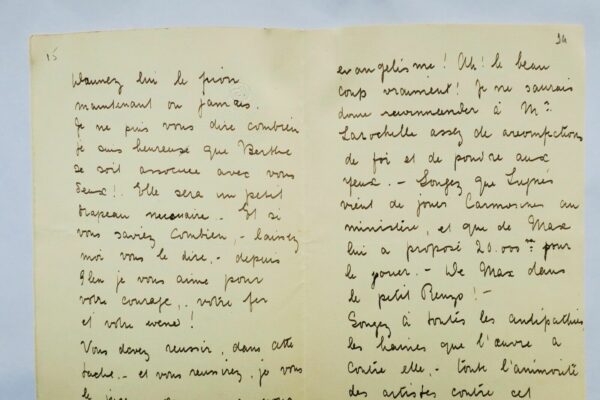 15
lui le pion
maintenant ou jamais.
Je ne puis vous dire combien
je suis heureuse que Berthe
se soit associée avec vous
deux! Elle sera un petit
drapeau . - Et si
vous saviez combien, - laissez
moi vous le dire, - depuis
je vous aime pour
votre courage, votre fer
et votre !
Vous devez réussir, dans cette
tache - et vous réussirez, je vous
le
14
evangelisme! Ah! le beau
coup vraiment! Je ne saurais
donc recommander à Mr
Larochelle assez de
de foi et de poudre aux
yeux. - Songez que Lugné
vient de jouer au
ministère, et que de Max
lui a proposé 20.000 pour
le jouer. - De Max dans
le petit Renzo! -
Songez à toutes les antipathies
les haines que l'œuvre a
contre elle, - toute l'animosité
des artistes contre cet